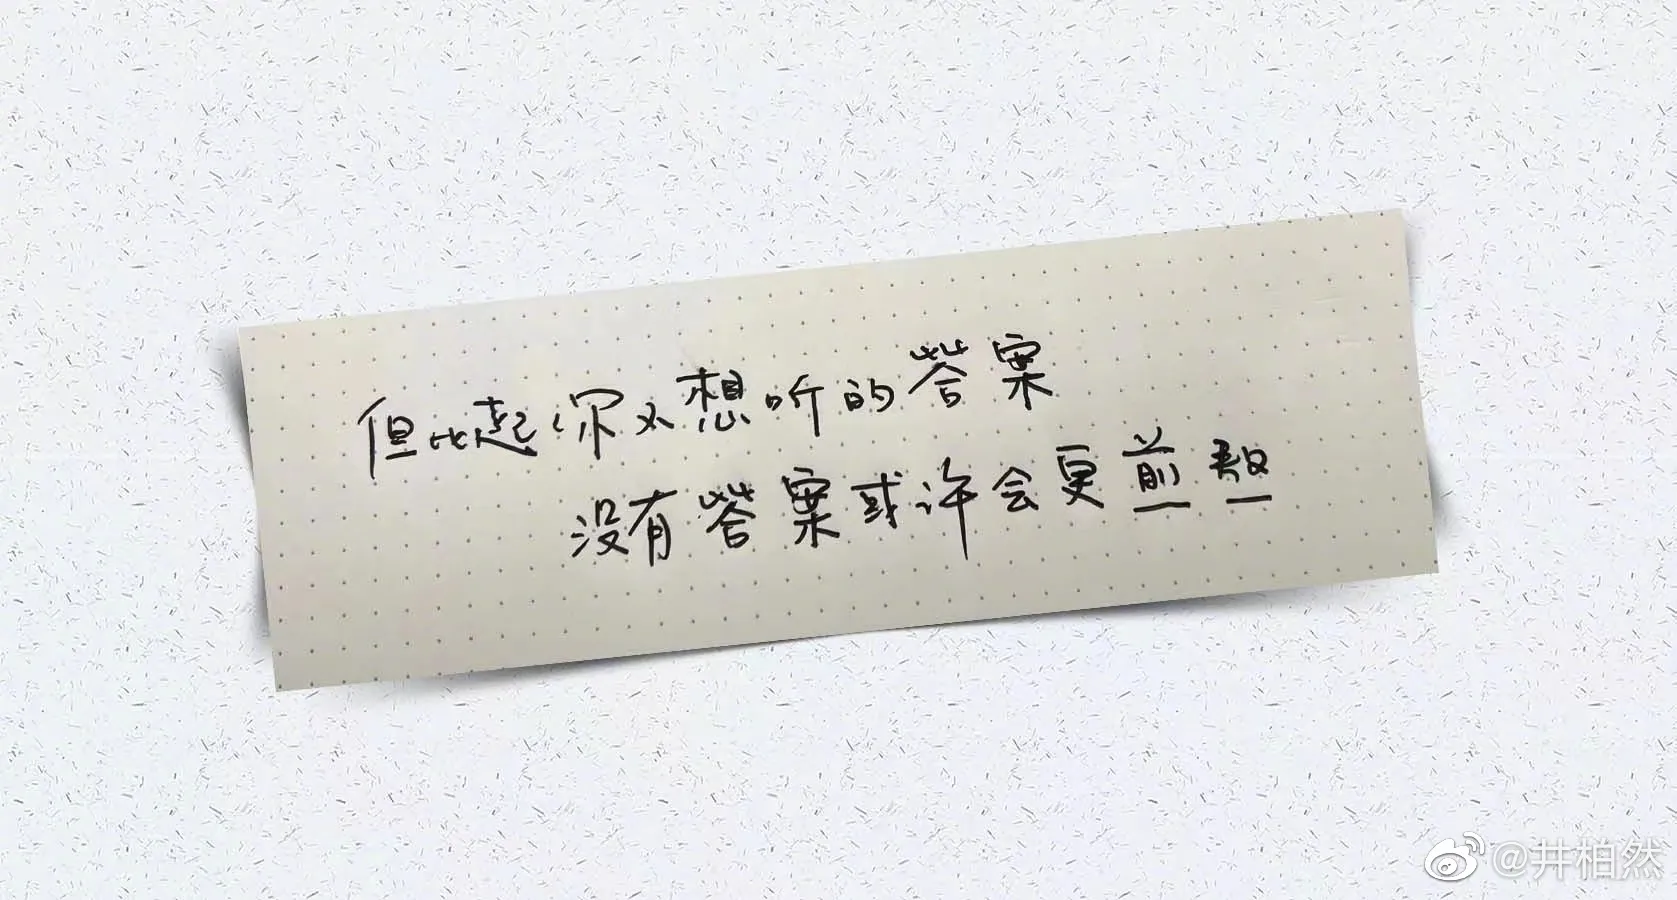 但比起你不想听的答案
没有答案或许会更煎熬
@井柏然